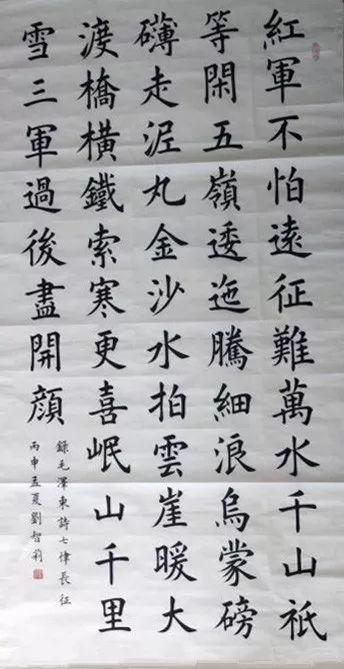 紅軍不怕遠征難萬水千山祇
等閑五嶺逶迤騰細浪烏蒙磅
礴走泥丸金沙水拍雲崖暖大
渡橋橫鐵索寒更喜岷山千里
雪三軍過後盡開顏
錄毛澤東詩七律長征
丙申孟夏劉智